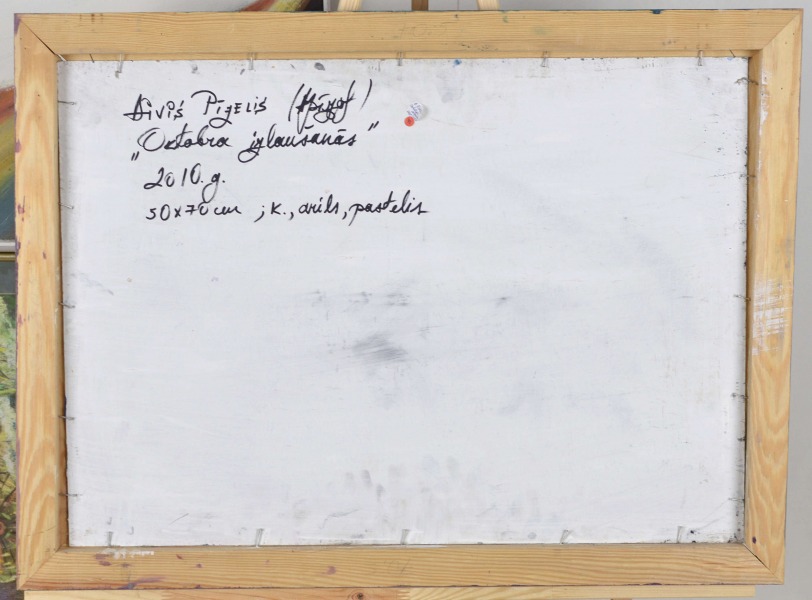 Aivis Pīzelis
"Oktobra izlaušanās"
2010.g.
50x70 cm ; k., akrils, pastelis